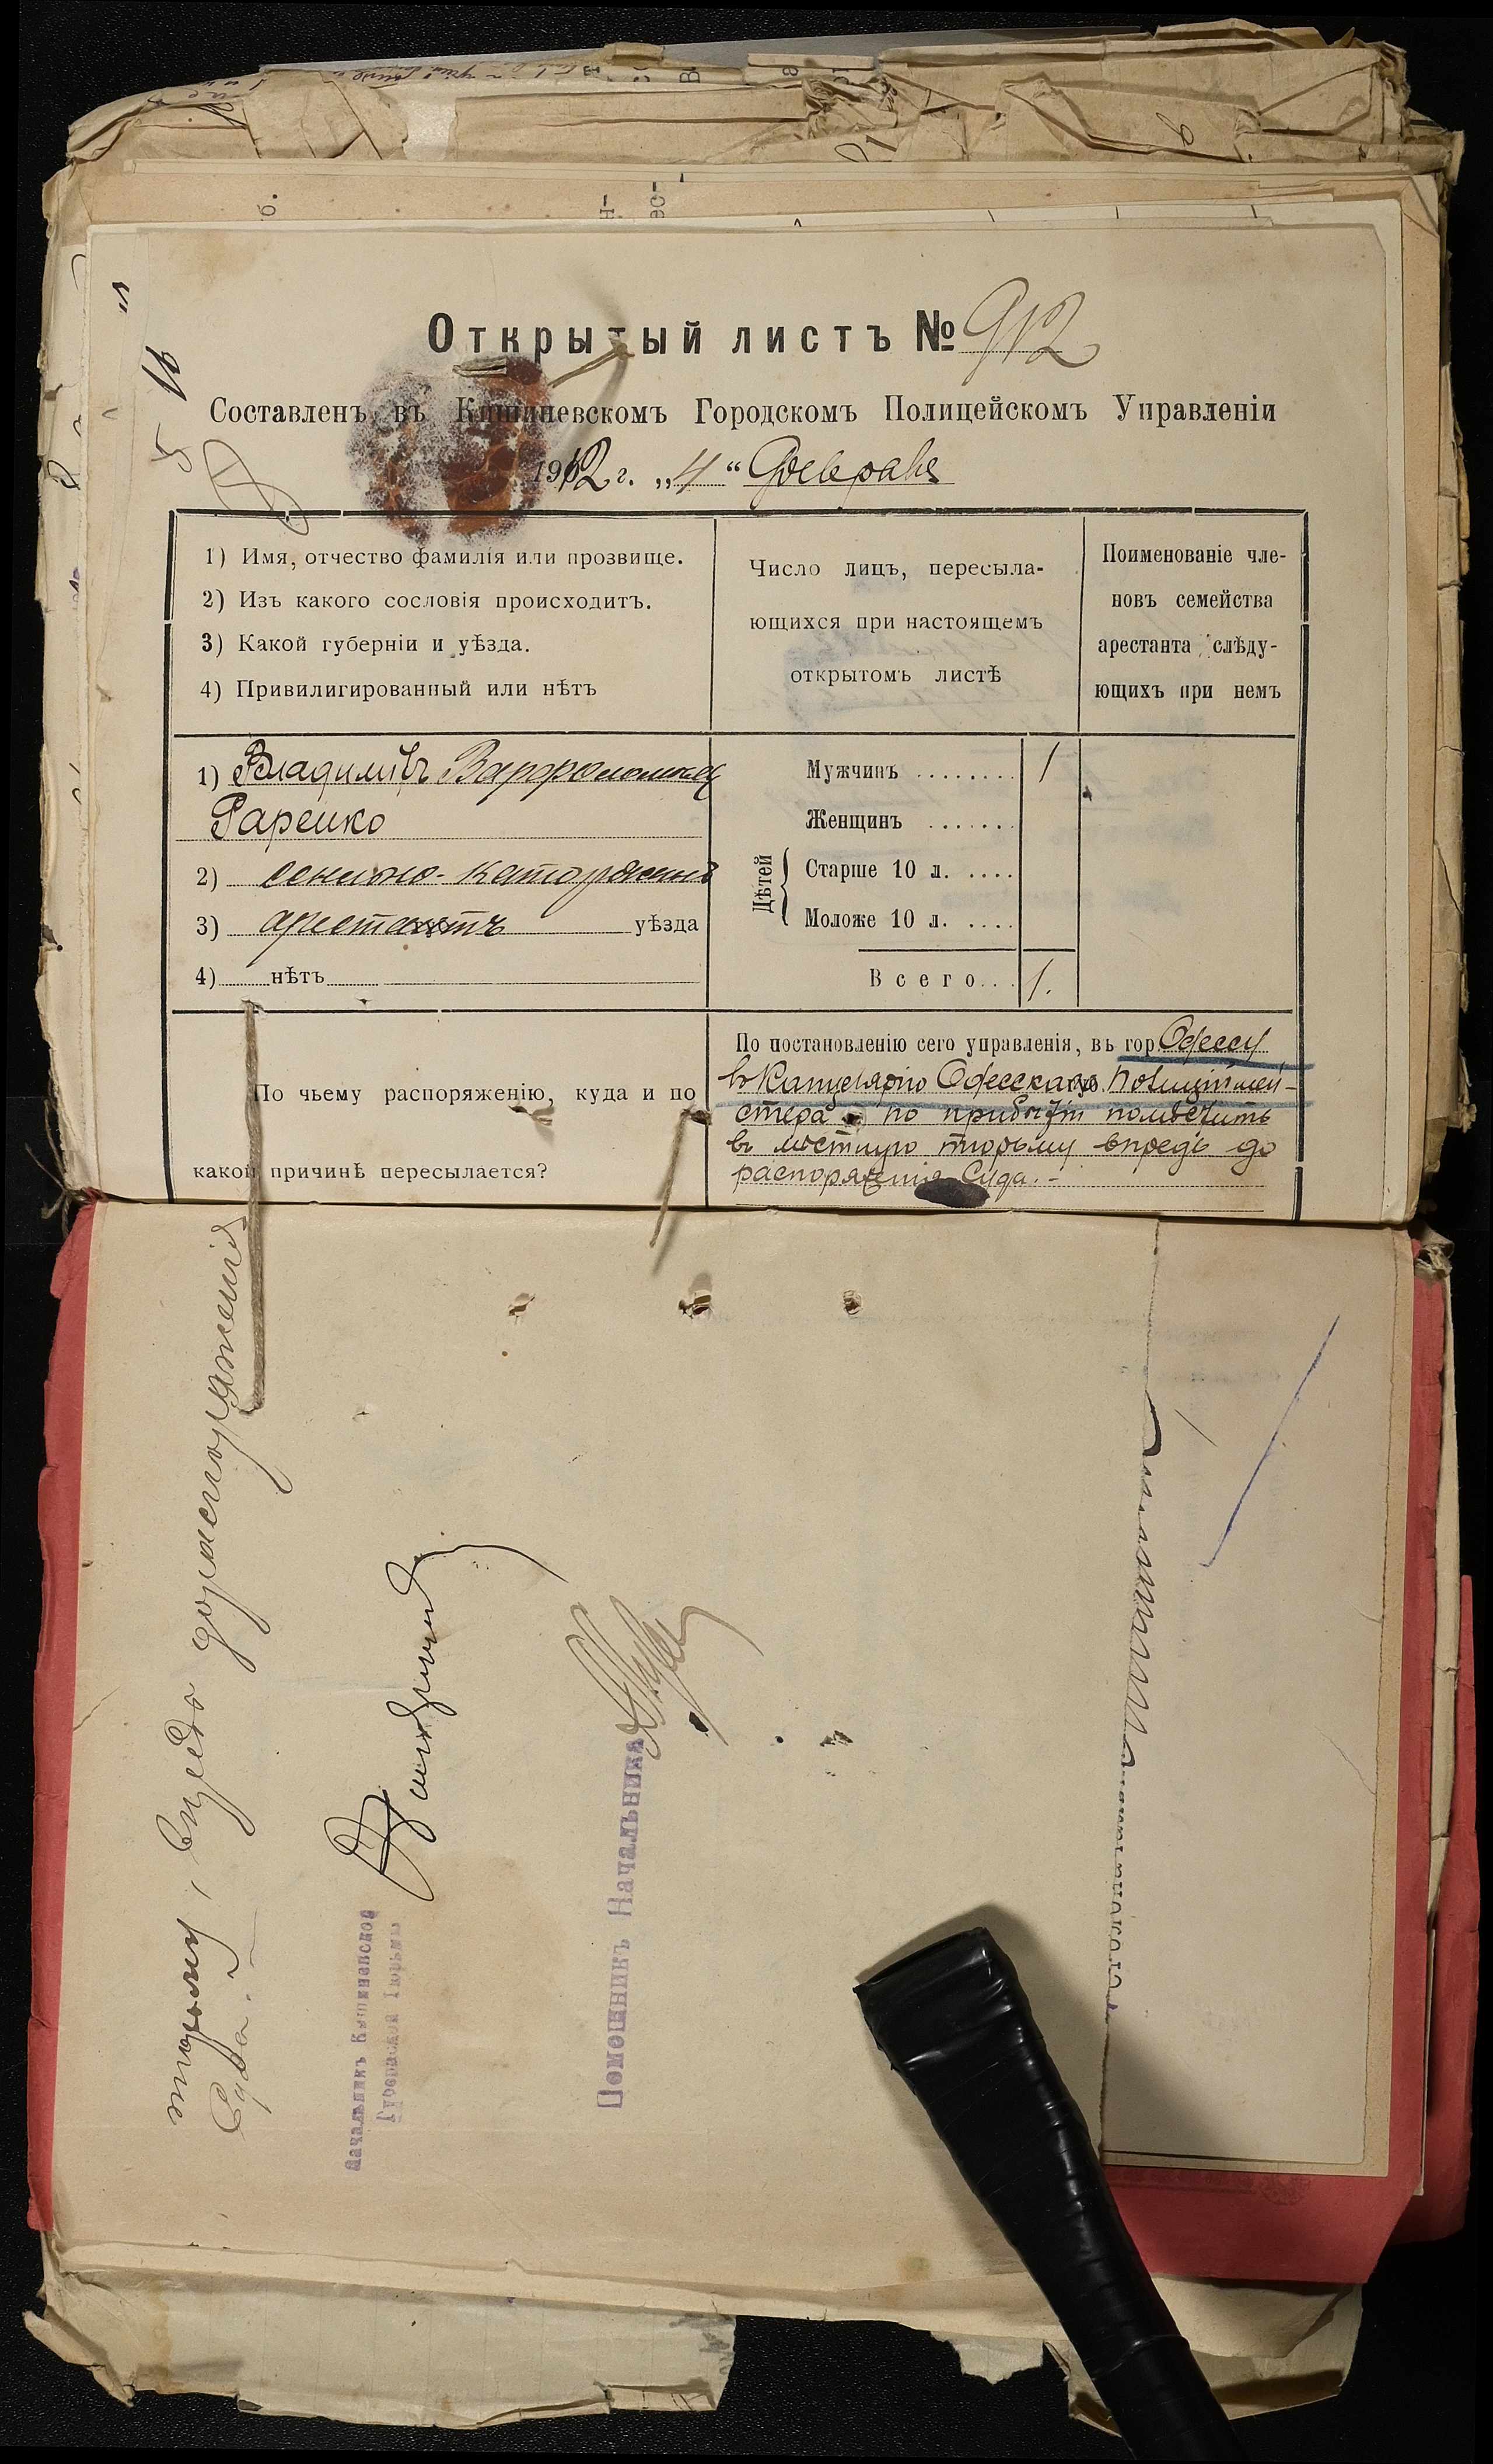 Открытый листъ № 912
Составленъ въ Кишиневскомъ Городскомъ Полицейскомъ Управленіи
1912 г. „4“ Февраля
1) Имя, отчество фамилія или прозвище.
2) Изъ какого сословія происходитъ.
3) Какой губерніи и уѣзда.
4) Привилигированный или нѣтъ
Число лицъ, пересыла-
ющихся при настоящемъ
открытомъ листѣ
Поименованіе чле-
новъ семейства
арестанта слѣду-
ющихъ при немъ
1) Владиміръ
2) ссыльно-каторжный
3) арестантъ уѣзда
4) нѣтъ
Мужчинъ ........ 1
Женщинъ .......
Дѣтей
Старше 10 л. ....
Моложе 10 л. ....
Всего... 1.
По чьему распоряженію, куда и по
какой причинѣ пересылается?
По постановленію сего управленія, въ гор. Одессу
въ Канцелярію Одесскаго Полиціймей-
стера по прибытіи помѣстить
въ мѣстную тюрьму впредь до
распоряженія Суда.-
тюрьму, впредь до распоряженія
Суда.-
Начальникъ Кишиневской
Губернской Тюрьмы
Помощникъ Начальника